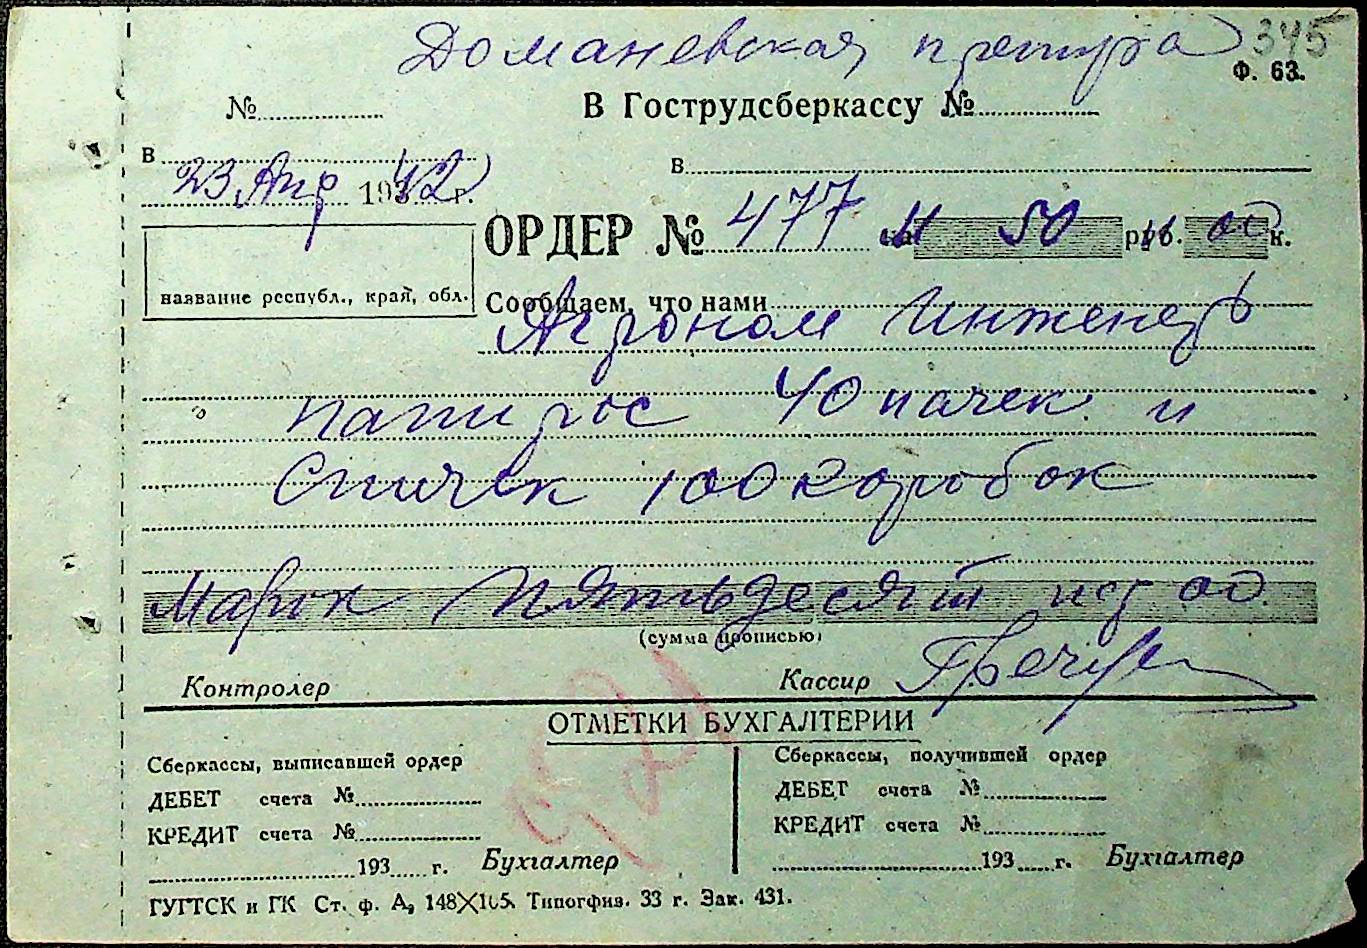 Доманевская претура 345
Ф. 63.
№ В Гострудсберкассу №
в в
23 Апр 1942 г.
ОРДЕР № 477 на 50 руб. 00 к.
название республ., край, обл.
Сообщаем, что нами
Агроном Инженер
папирос 40 пачек и
Спичек 100 коробок
Марок Пятьдесят пф 00
(сумма прописью)
Контролер Кассир
ОТМЕТКИ БУХГАЛТЕРИИ
Сберкассы, выписавшей ордер Сберкассы, получившей ордер
ДЕБЕТ счета № ДЕБЕТ счета №
КРЕДИТ счета № КРЕДИТ счета №
193 г. Бухгалтер 193 г. Бухгалтер
ГУГТСК и ГК Ст. ф. А, 148×105. Типогфиз. 33 г. Зак. 431.